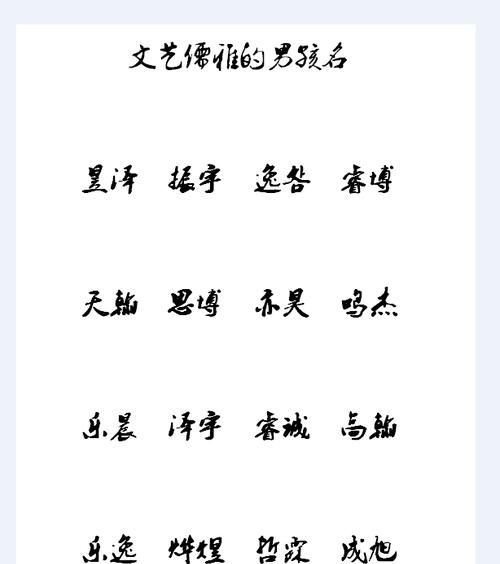 文艺儒雅的男孩名
昱泽 振宇 逸明 睿博
天翰 思博 亦昊 鸣杰
乐晨 泽宇 睿诚 高翰
乐逸 烨煜 哲霖 成旭